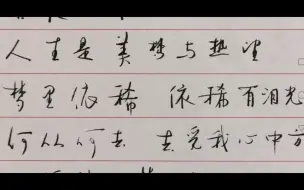 人生是美梦与热望
梦里依稀 依稀有泪光
何从何去 去觅我心中方